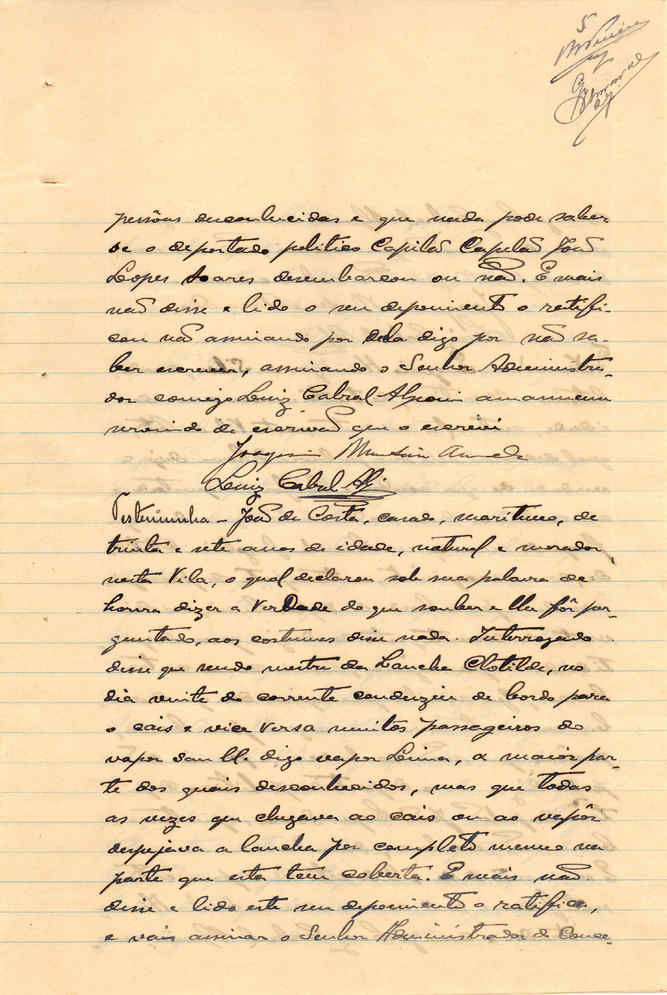 5
pessôas desconhecidas e que nada pode saber
se o deportado politico Capitaõ Capelaõ Joaõ
Lopes Soares desembarcou ou naõ. E mais
naõ disse e lido o seu depoimento o ratifi-
cou naõ assinando por dela digo por naõ sa-
ber escrever, assinando o Senhor Administra-
dor comigo Luiz Cabral Algoim amanuense
servindo de escrivaõ que o escrevi
Joaquim
Luiz Cabral
Testemunha - Joaõ da Costa, casado, maritimo, de
trinta e sete anos de idade, natural e morador
nesta Vila, o qual declarou sob sua palavra de
honra dizer a verdade do que souber e lhe fôr per-
guntado, aos costumes disse nada. Interrogado
disse que sendo mestre da Lancha Clotilde, no
dia vinte do corrente conduziu de bordo para
o cais e vice versa muitos passageiros do
vapor digo vapor Lima, a maior par-
te dos quais desconhecidos, mas que todas
as vezes que chegava ao cais ou ao vapôr
despejava a lancha por completo mesmo na
parte que esta tem coberta. E mais naõ
disse e lido este seu depoimento o ratifica,
e vais assinar o Senhor Administrador do Conce-